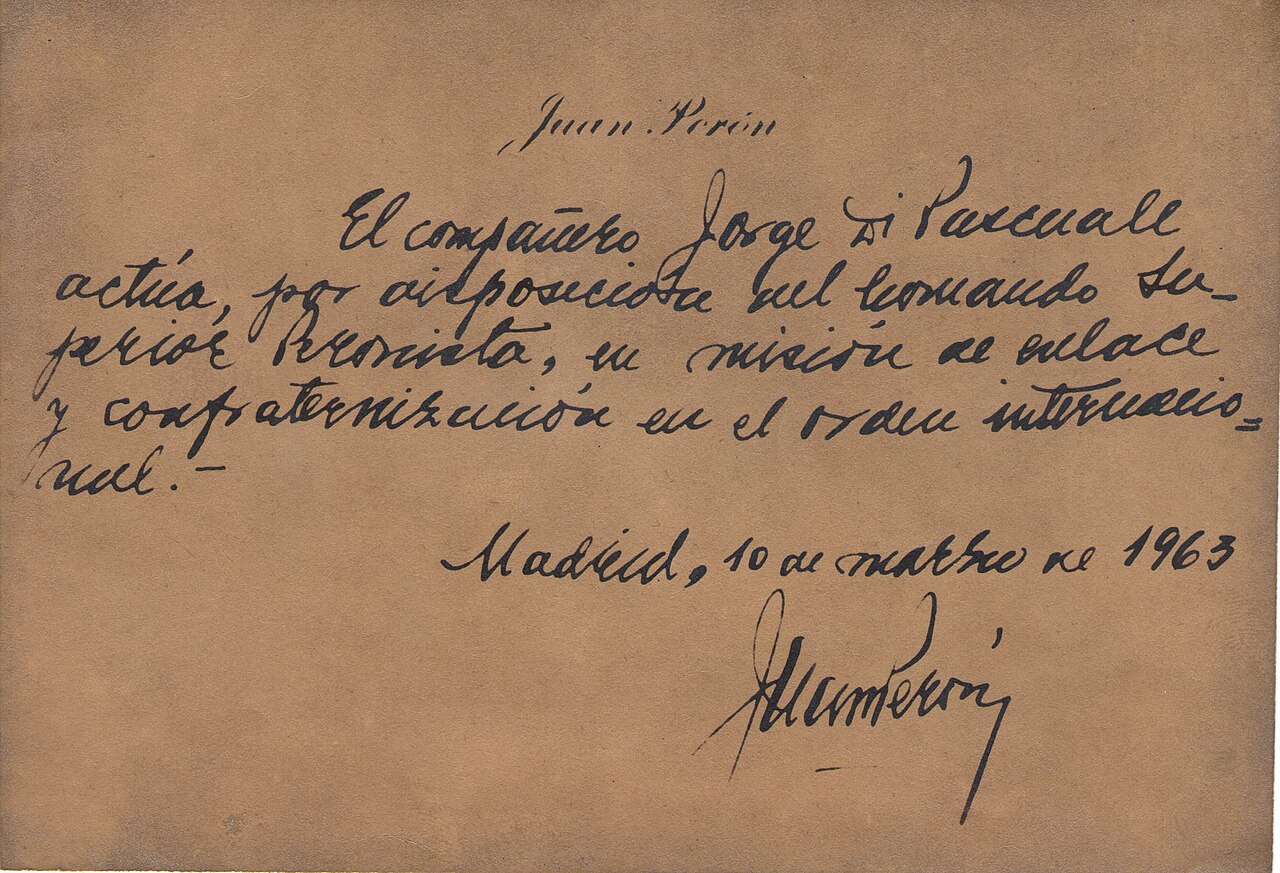 Juan Perón
El compañero Jorge Di Pascuale
actúa, por disposición del Comando Su-
perior Peronista, en misión de enlace
y confraternización en el orden internacio=
nal.-
Madrid, 10 de marzo de 1963
Juan Perón